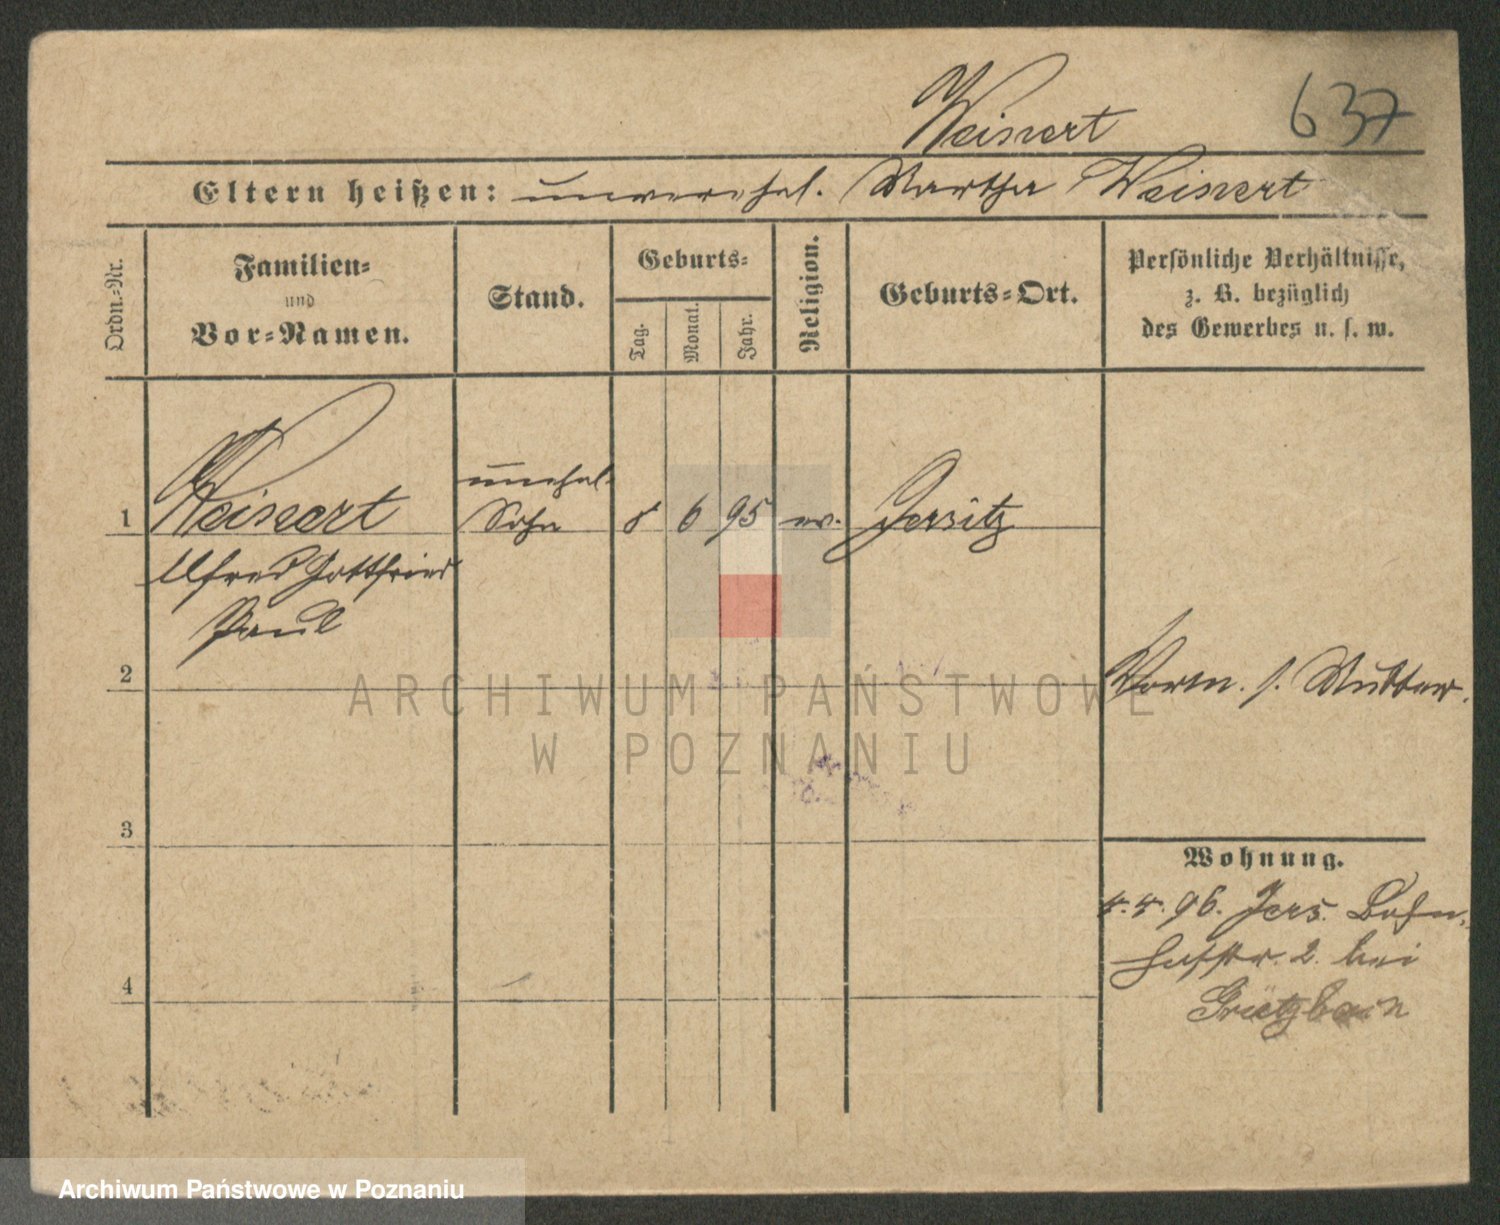 Weinert
637
Eltern heißen: unverehel. Martha Weinert
Ordn.-Nr.
Familien-
und
Vor-Namen.
Stand.
Geburts-
Tag.
Monat.
Jahr.
Religion.
Geburts-Ort.
Persönliche Verhältnisse,
z. B. bezüglich
des Gewerbes u. s. w.
1 Weinert
unehel.
Sohn
8 6 95 ev. Jersitz
Alfred Gottfried
Paul
2
Vorm. s. Mutter.
ARCHIWUM PAŃSTWOWE
W POZNANIU
3
Wohnung.
4.4.96. Jers. Bahn-
hofstr. 2. bei
4
Archiwum Państwowe w Poznaniu